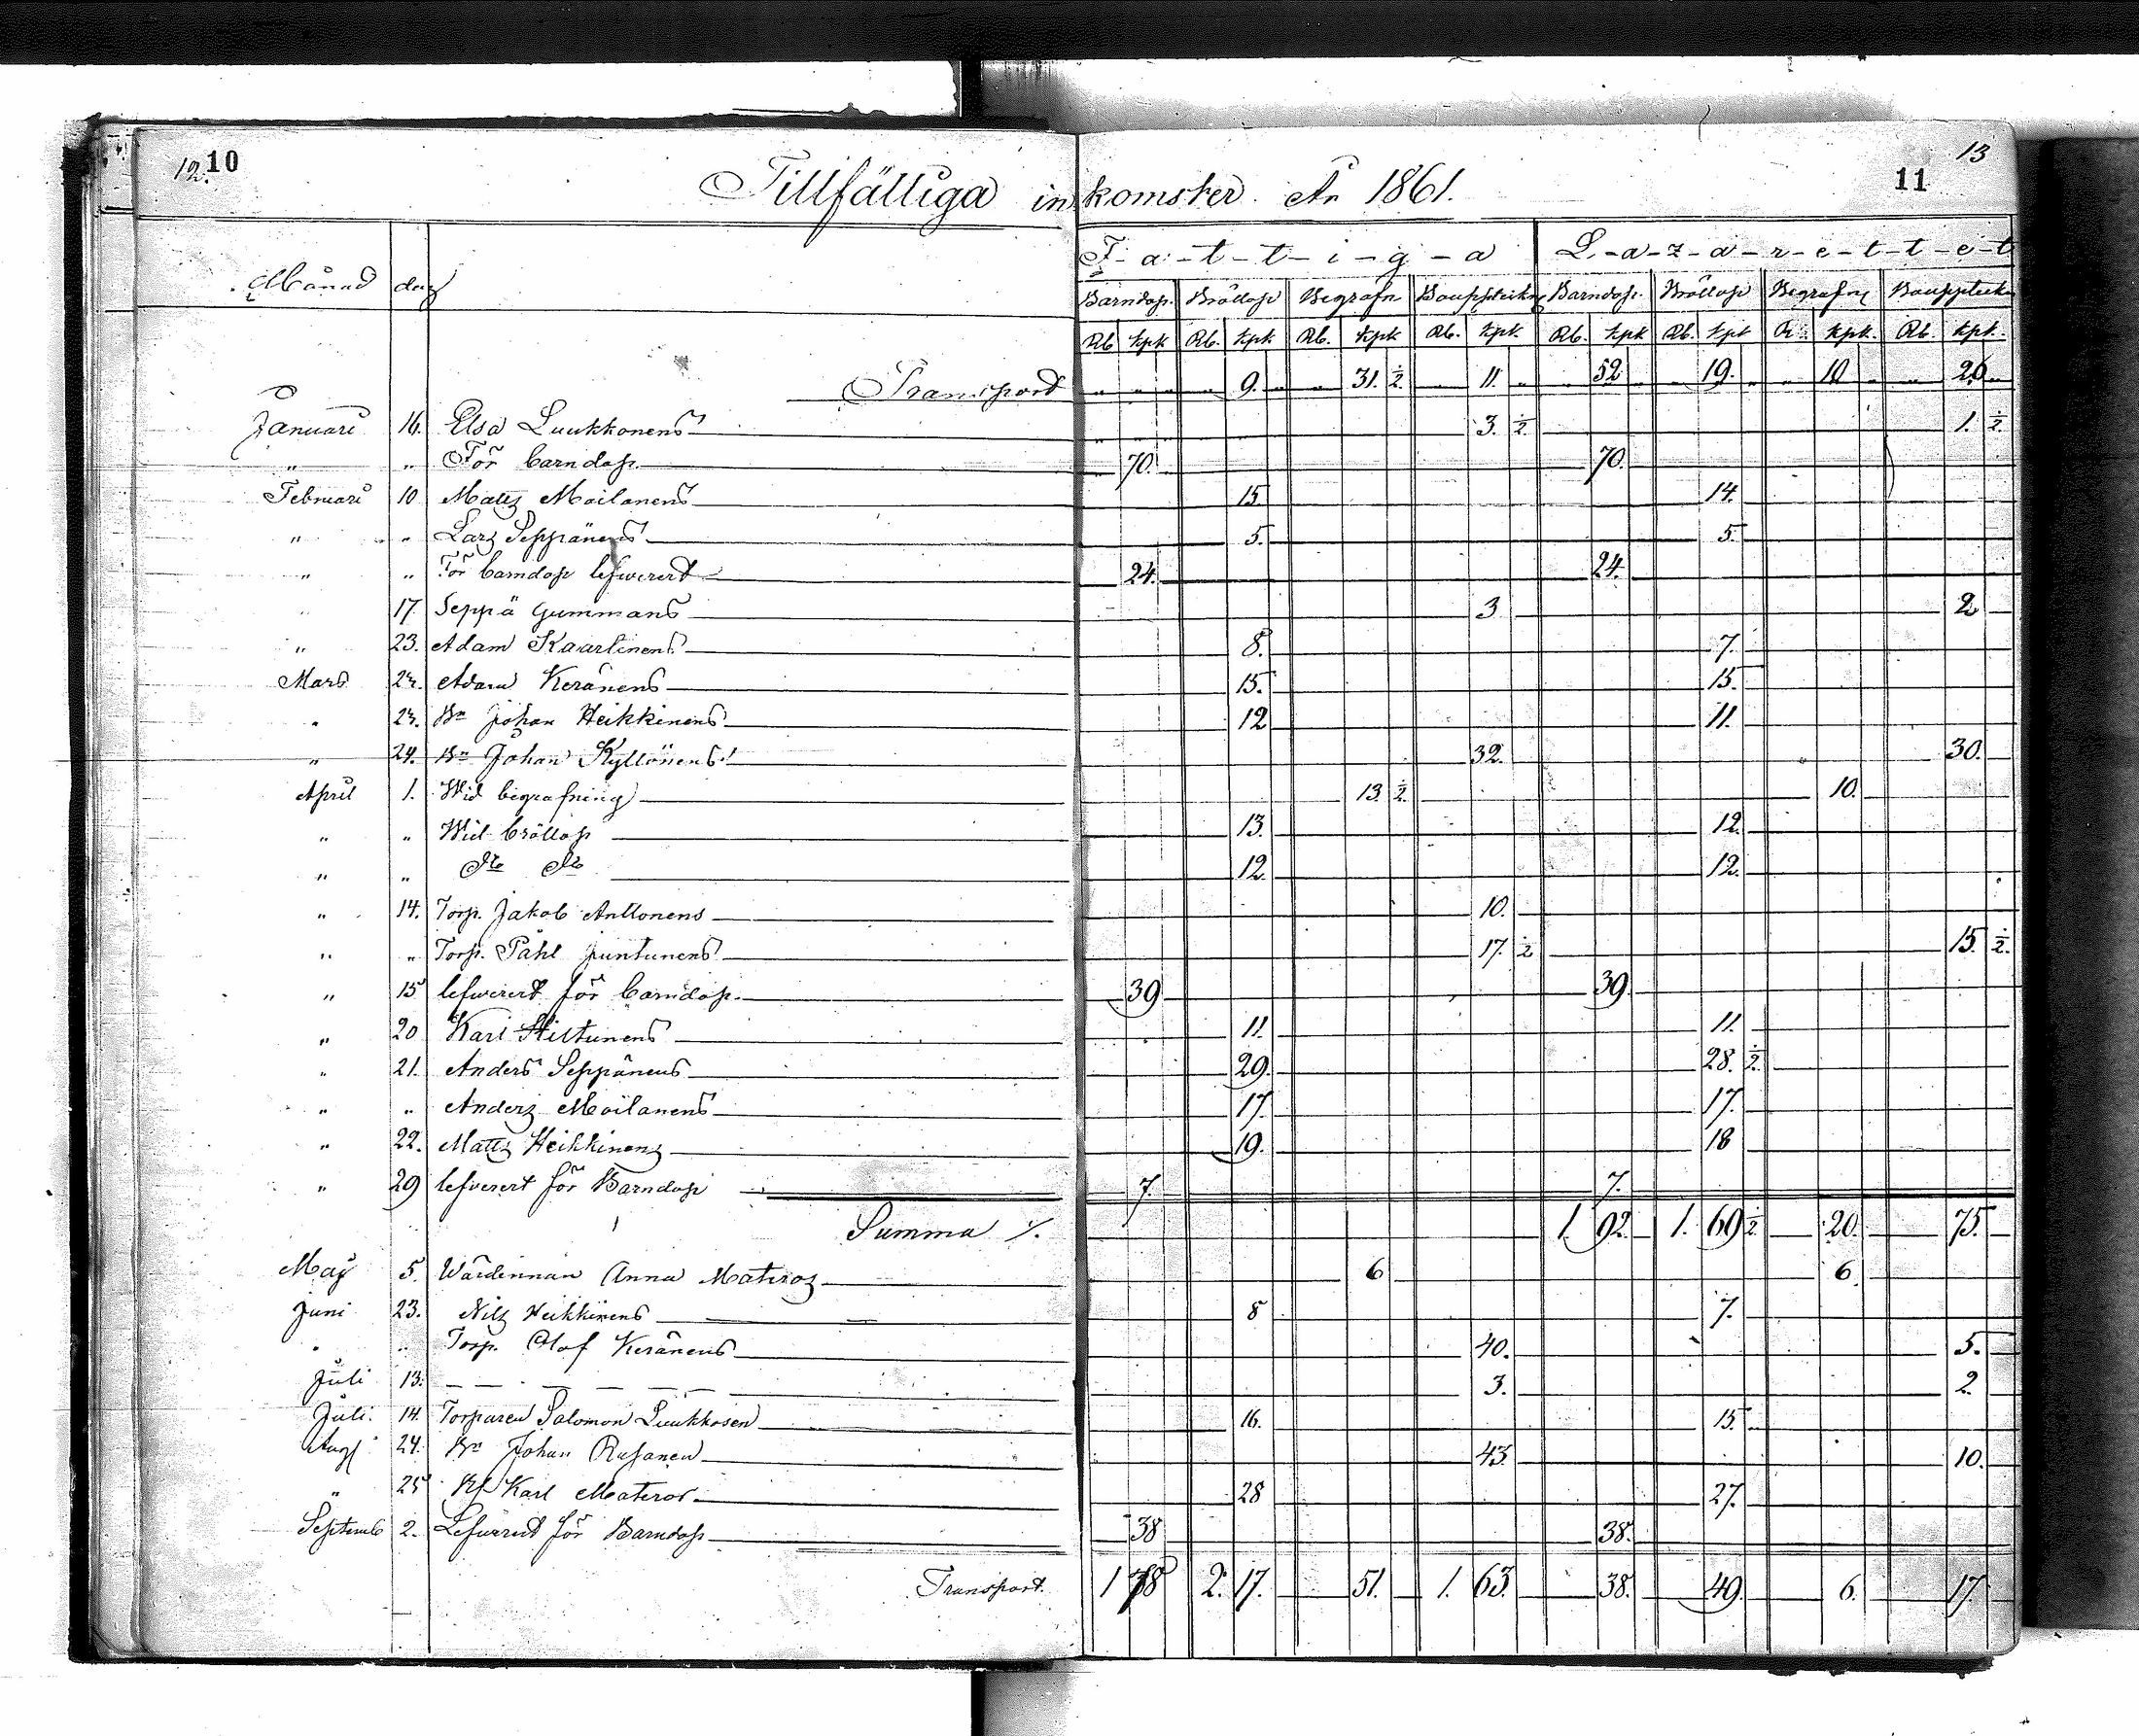 12. 10
13
11
Tillfälliga inkomster År 1861.
F-a-t-t-i-g-a L-a-z-a-r-e-t-t-e-t
Månad dag Barndop. Bröllop Begrafn Bouppteckn Barndop. Bröllop Begrafn Bouppteckn
Rb kpk Rb. kpk Rb. kpk Rb. kpk. Rb. kpk Rb. kpk R. kpk. Rb. kpk.
Transport 9. 31. ½ 11. 52 19. 10 26
Januari 16. Elsa Luukkonens 3. ½ 1. ½
" " För barndop. 70. 70.
Februari 10 Matts Moilanens 15 14.
" " Lars Seppänens 5. 5.
" " För barndop lefverert 24. 24.
" 17 Seppä Gummans 3 2
" 23. Adam Kaartinens 8. 7.
Mars 24. Adam Keränens 15. 15.
" 24. Bn Johan Heikkinens 12 11.
" 24. Bn Johan Kyllönens 32. 30.
April 1. Wid begrafning 13. ½ 10.
" " Wid bröllop 13. 12.
" " Do Do 12. 12.
" 14. Torp. Jakob Anttonens 10.
" " Torp. Påhl Juntunens 17. ½ 15 ½.
" 15 lefvererd för barndop. 39 39.
" 20 Karl Hiltunens 11. 11.
" 21. Anders Seppänens 29. 28. ½
" " Anders Moilanens 17. 17.
" 22. Matts Heikkinens 19. 18
" 29 lefverert för Barndop 7. 7.
Summa /. 1. 92. 1. 69 ½ 20. 75.
Maj 5. Wärdinnan Anna Materos 6 6.
Juni 23. Nils Heikkinens 8 7.
" " Torp. Olof Keränens 40. 5.
Juli 13. — — — — — — 3. 2.
Juli. 14. Torparen Salomon Luukkosen 16. 15.
Aug. 24. Bn Johan Rusanen 43. 10.
" 25 Karl Materos 28 27.
Septemb 2. Lefvererd för Barndop 38 38.
Transport. 1 78 2. 17. 51. 1. 63. 38. 49. 6. 17.